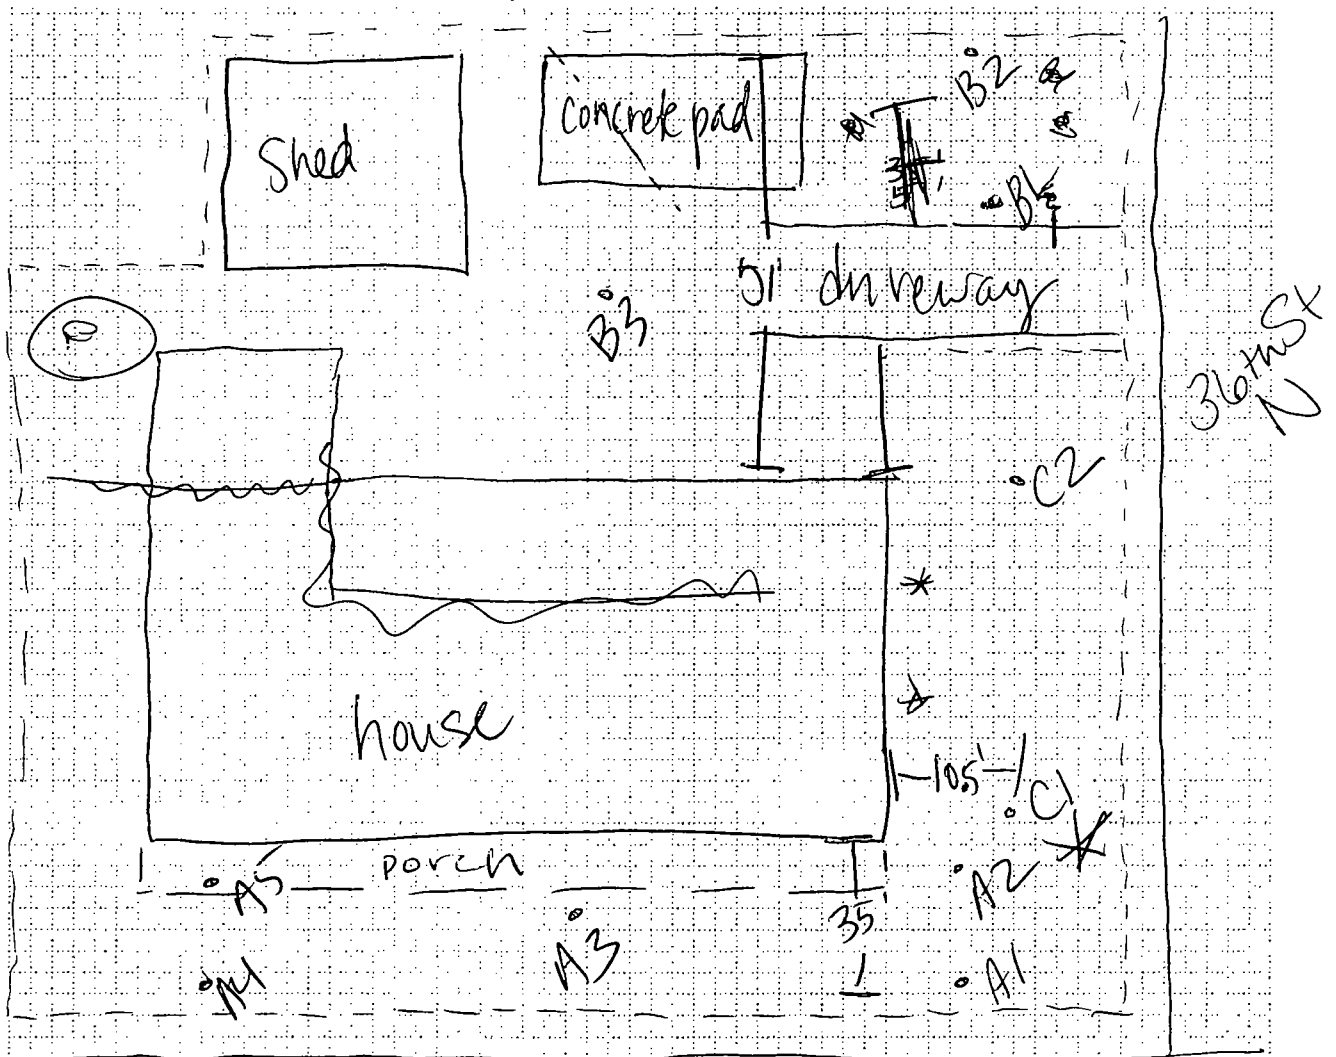 B2
Shed
concrete pad
B1
51' driveway
B3
36th St
N
C2
house
10.5'
C1
porch
A2
A5
35'
A3
A4
A1